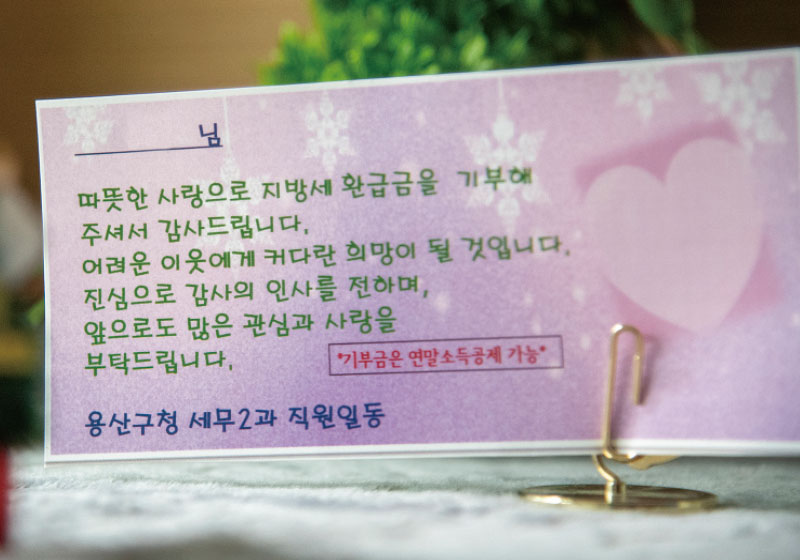 님
따뜻한 사랑으로 지방세 환급금을 기부해
주셔서 감사드립니다.
어려운 이웃에게 커다란 희망이 될 것입니다.
진심으로 감사의 인사를 전하며,
앞으로도 많은 관심과 사랑을
부탁드립니다.
*기부금은 연말소득공제 가능*
용산구청 세무2과 직원일동